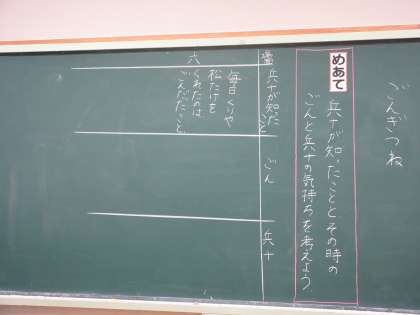 ごんぎつね
めあて
兵十が知ったことと、その時の
ごんと兵十の気持ちを考えよう
場面
兵十が知ったこと
ごん
兵十
六
毎日くりや
松たけを
くれたのは
ごんだたこと。